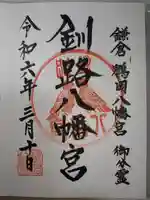 鎌倉 鶴岡八幡宮 御分霊
釧路八幡宮
令和六年三月十日